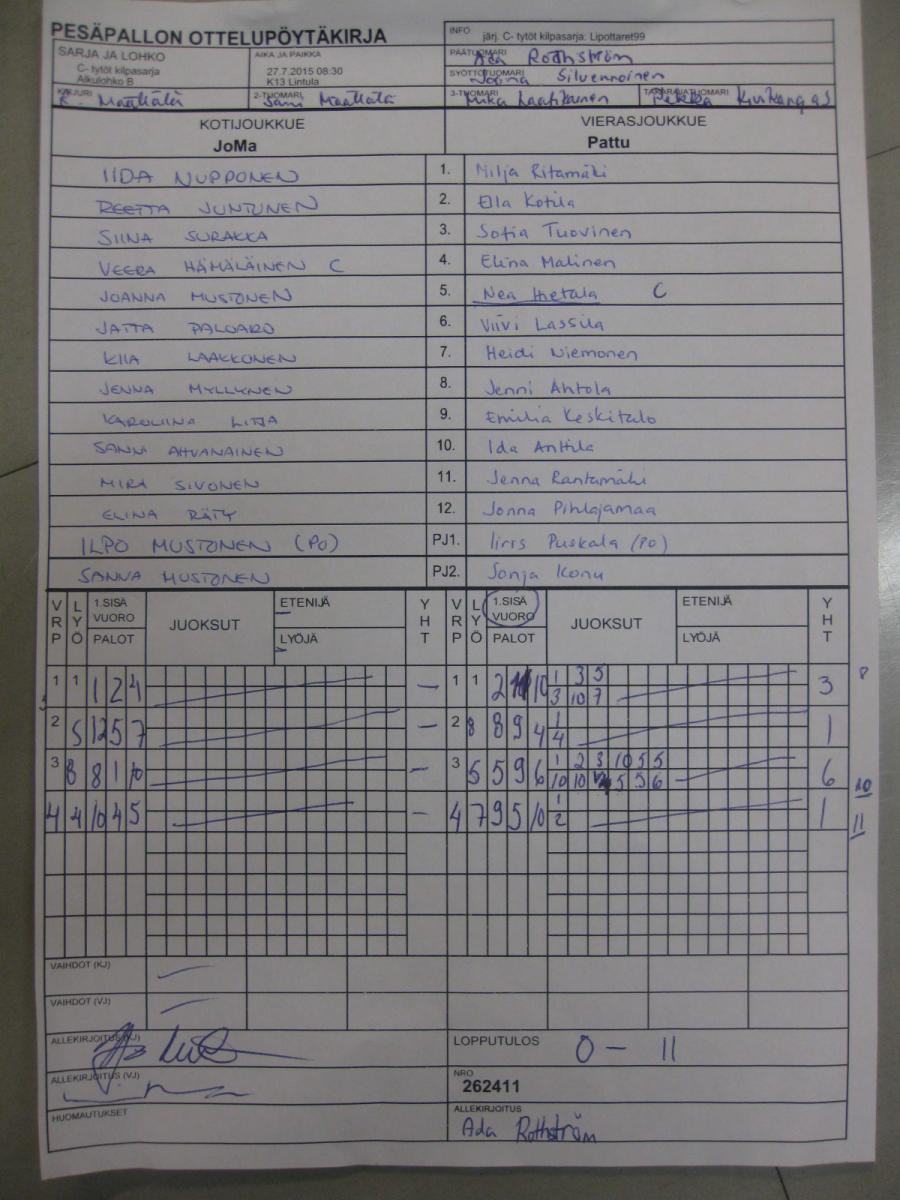 PESÄPALLON OTTELUPÖYTÄKIRJA
INFO järj. C- tytöt kilpasarja: Lipottaret99
SARJA JA LOHKO
C- tytöt kilpasarja
Alkulohko B
AIKA JA PAIKKA
27.7.2015 08:30
K13 Lintula
PÄÄTUOMARI Ada Rothström
SYÖTTÖTUOMARI Silvennoinen
KIRJURI
2-TUOMARI
3-TUOMARI Mika Laatikainen
TAKARAJATUOMARI Pekka
KOTIJOUKKUE
JoMa
VIERASJOUKKUE
Pattu
IIDA NUPPONEN 1. Milja Ritamäki
REETTA JUNTUNEN 2. Ella Kotila
SIINA SURAKKA 3. Sofia Tuovinen
VEERA HÄMÄLÄINEN C 4. Elina Malinen
JOANNA MUSTONEN 5. Nea Hietala C
JATTA PALOARO 6. Viivi Lassila
KIIA LAAKKONEN 7. Heidi Niemonen
JENNA MYLLYNEN 8. Jenni Ahtola
KAROLIINA LITJA 9. Emilia Keskitalo
SANNI AHVANAINEN 10. Ida Anttila
MIRA SIVONEN 11. Jenna Rantamäki
ELINA RÄTY 12. Jonna Pihlajamaa
ILPO MUSTONEN (PO) PJ1. Iiris Puskala (PO)
SANNA MUSTONEN PJ2. Sonja Konu
VRP LYÖ 1.SISÄ VUORO PALOT JUOKSUT ETENIJÄ LYÖJÄ YHT VRP LYÖ 1.SISÄ VUORO PALOT JUOKSUT ETENIJÄ LYÖJÄ YHT
1 1 1 2 4 – 1 1 2 10 1 3 5 3 8
3 10 7
2 5 12 5 7 – 2 8 8 9 4 1 1
4
3 8 8 1 10 – 3 5 5 9 6 1 2 3 10 5 5 6 10
10 10 5 5 6
4 4 10 4 5 – 4 7 9 5 10 1 1 11
2
VAIHDOT (KJ) –
VAIHDOT (VJ) –
ALLEKIRJOITUS (KJ)
LOPPUTULOS 0 – 11
ALLEKIRJOITUS (VJ)
NRO
262411
HUOMAUTUKSET
ALLEKIRJOITUS
Ada Rothström